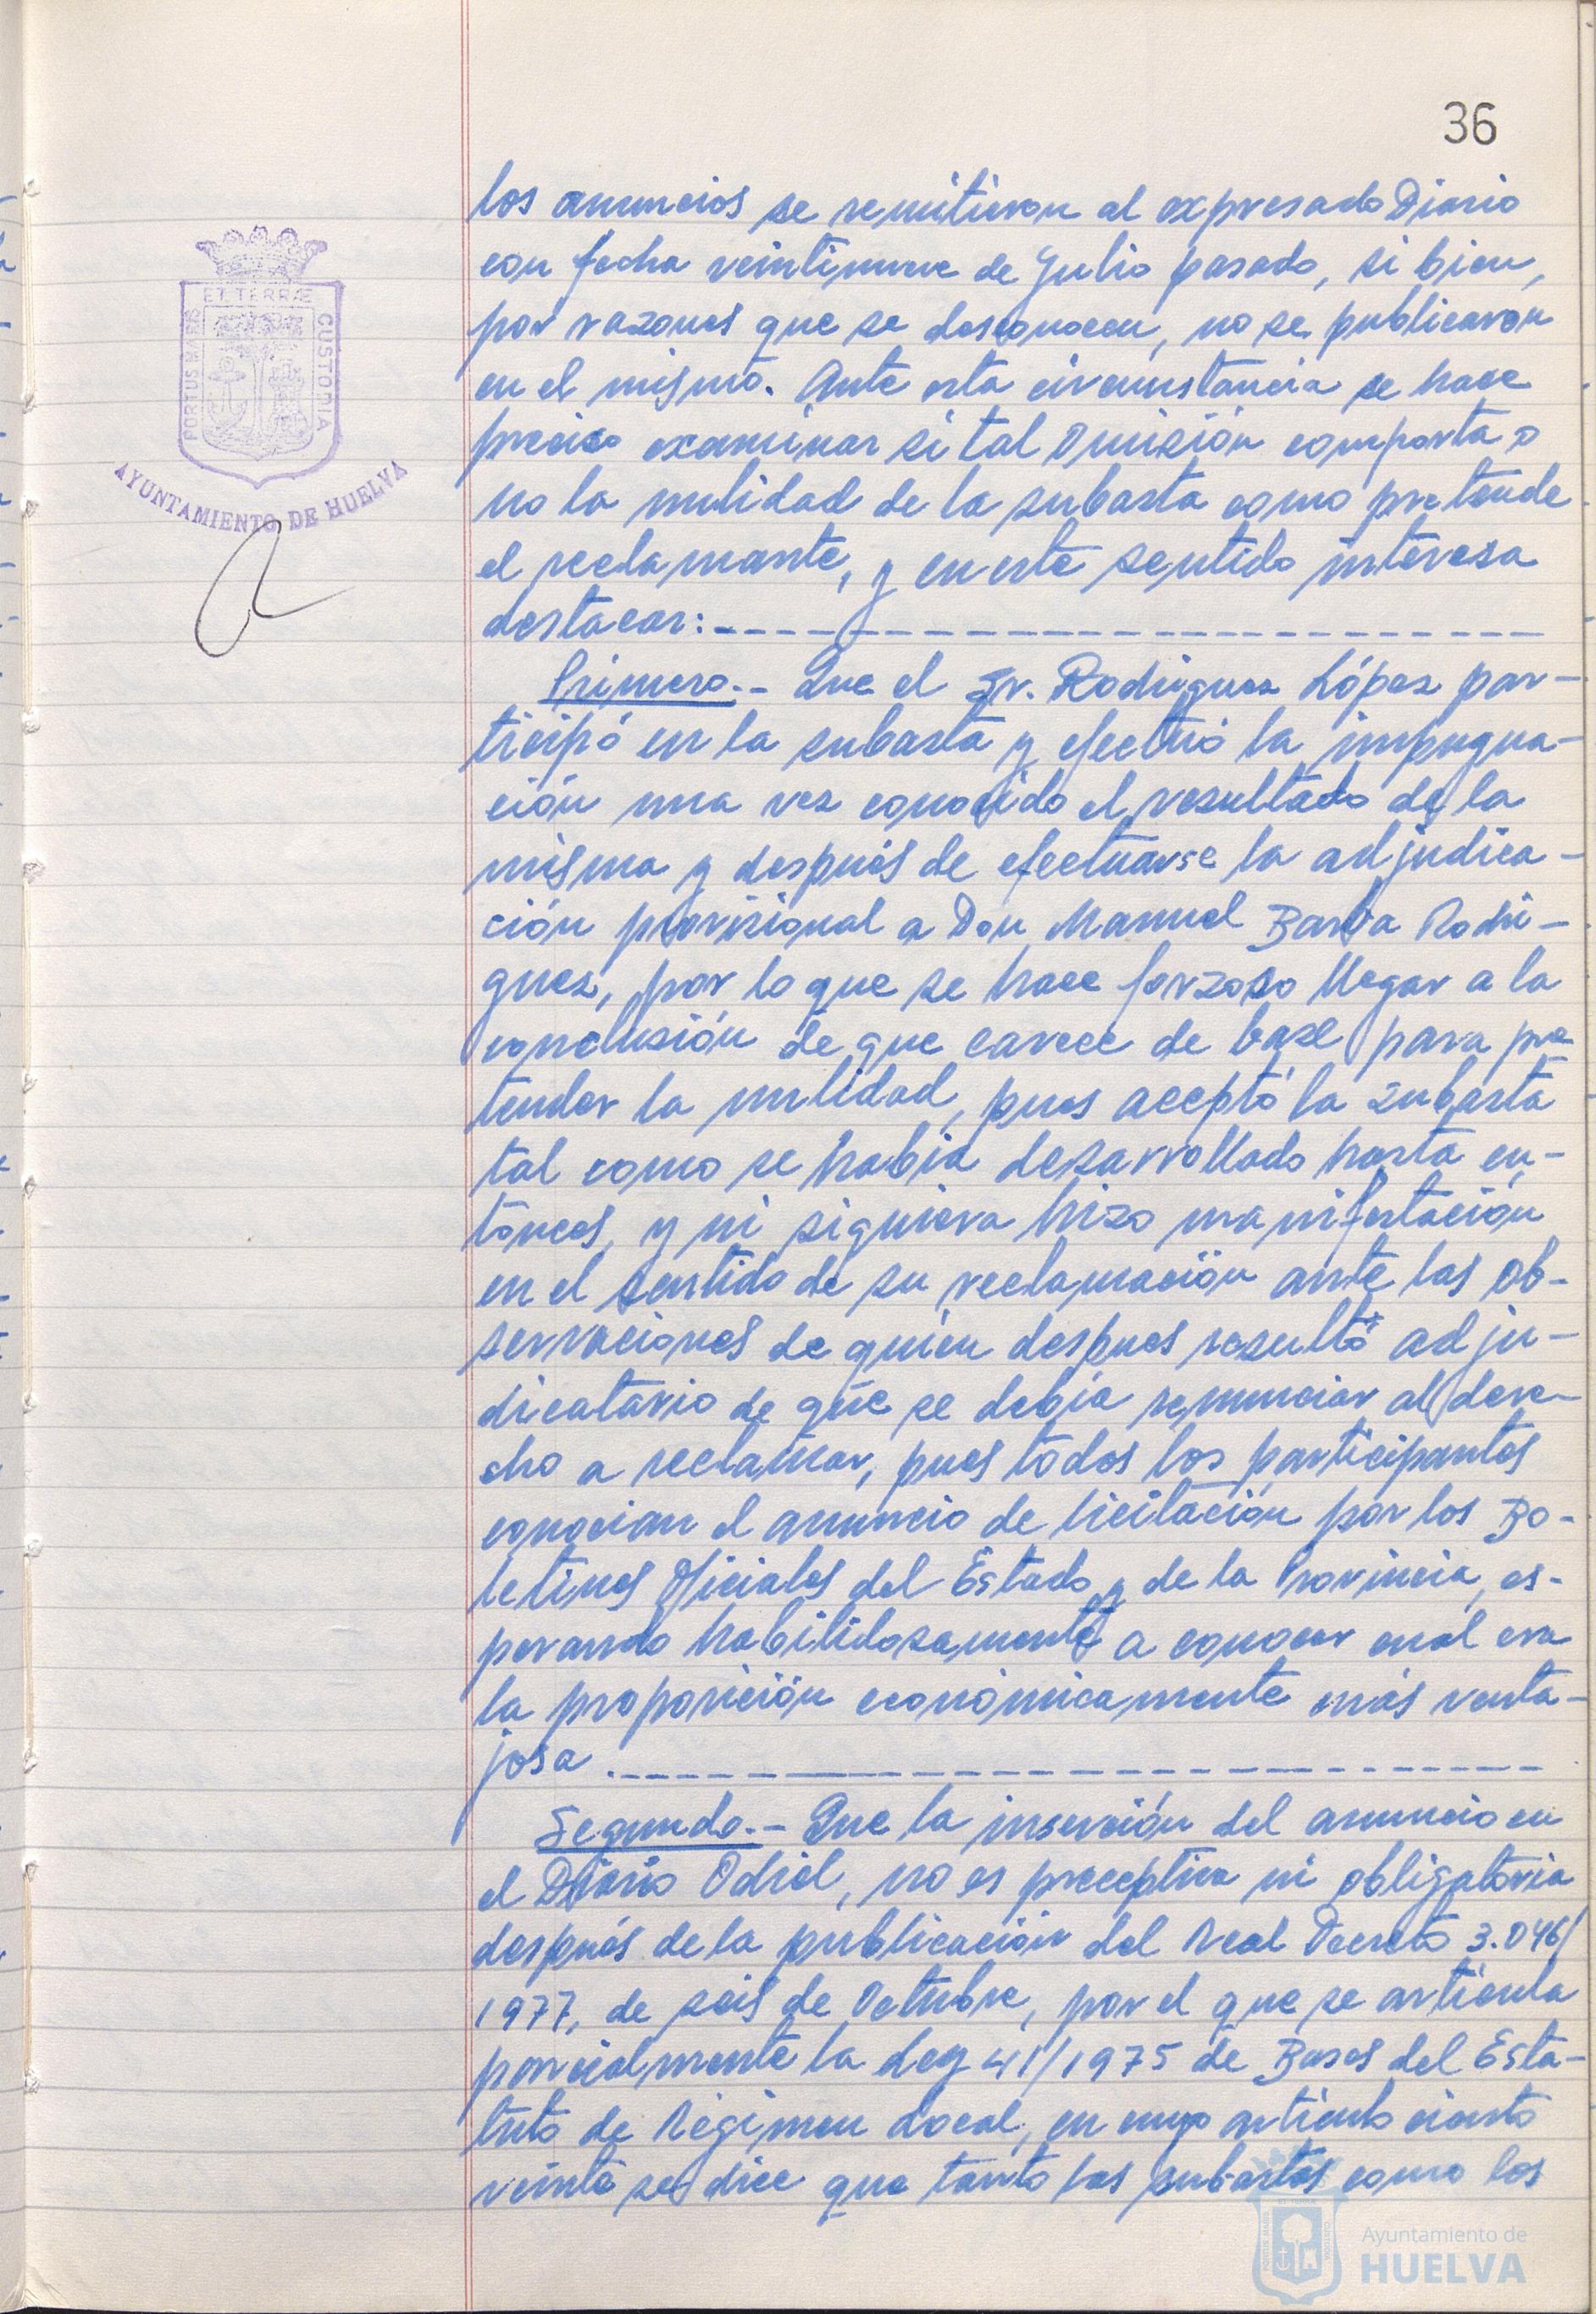 36
ET TERRÆ
PORTUS MARIS
CUSTODIA
AYUNTAMIENTO DE HUELVA
los anuncios se remitieron al expresado Diario
con fecha veintinueve de Julio pasado, si bien,
por razones que se desconocen, no se publicaron
en el mismo. Ante esta circunstancia se hace
preciso examinar si tal omisión comporta o
no la nulidad de la subasta como pretende
el reclamante, y en este sentido interesa
destacar:
Primero.- Que el Sr. Rodríguez López par-
ticipó en la subasta y efectuó la impugna-
ción una vez conocido el resultado de la
misma y después de efectuarse la adjudica-
ción provisional a Don Manuel Barba Rodrí-
guez, por lo que se hace forzoso llegar a la
conclusión de que carece de base para pre
tender la nulidad, pues aceptó la subasta
tal como se había desarrollado hasta en-
tonces, y ni siquiera hizo manifestación
en el sentido de su reclamación ante las ob-
servaciones de quien despues resultó adju-
dicatario de que se debía renunciar al dere-
cho a reclamar, pues todos los participantes
conocian el anuncio de licitación por los Bo-
letines Oficiales del Estado y de la Provincia, es-
perando habilidosamente a conocer cual era
la proposición económicamente más venta-
josa.
Segundo.- Que la inserción del anuncio en
el Diario Odiel, no es preceptiva ni obligatoria
después de la publicación del Real Decreto 3.046/
1977, de seis de Octubre, por el que se articula
parcialmente la Ley 41/1975 de Bases del Esta-
tuto de Régimen Local, en cuyo artículo ciento
veinte se dice que tanto las subastas como los
Ayuntamiento de
HUELVA